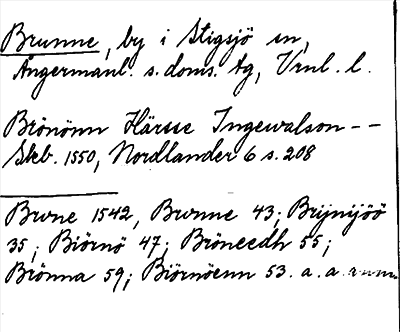 Brunne, by i Stigsjö sn,
Ångermanl. s. doms. tg, Vrnl. l.
Brönönn Härsse Ingewalson --
Skb. 1550, Nordlander 6 s. 208
Brvne 1542, Brvnne 43; Brijnijöö
35; Biörnö 47; Bröneedh 55;
Brönna 59; Biörnöenn 53. a. a.